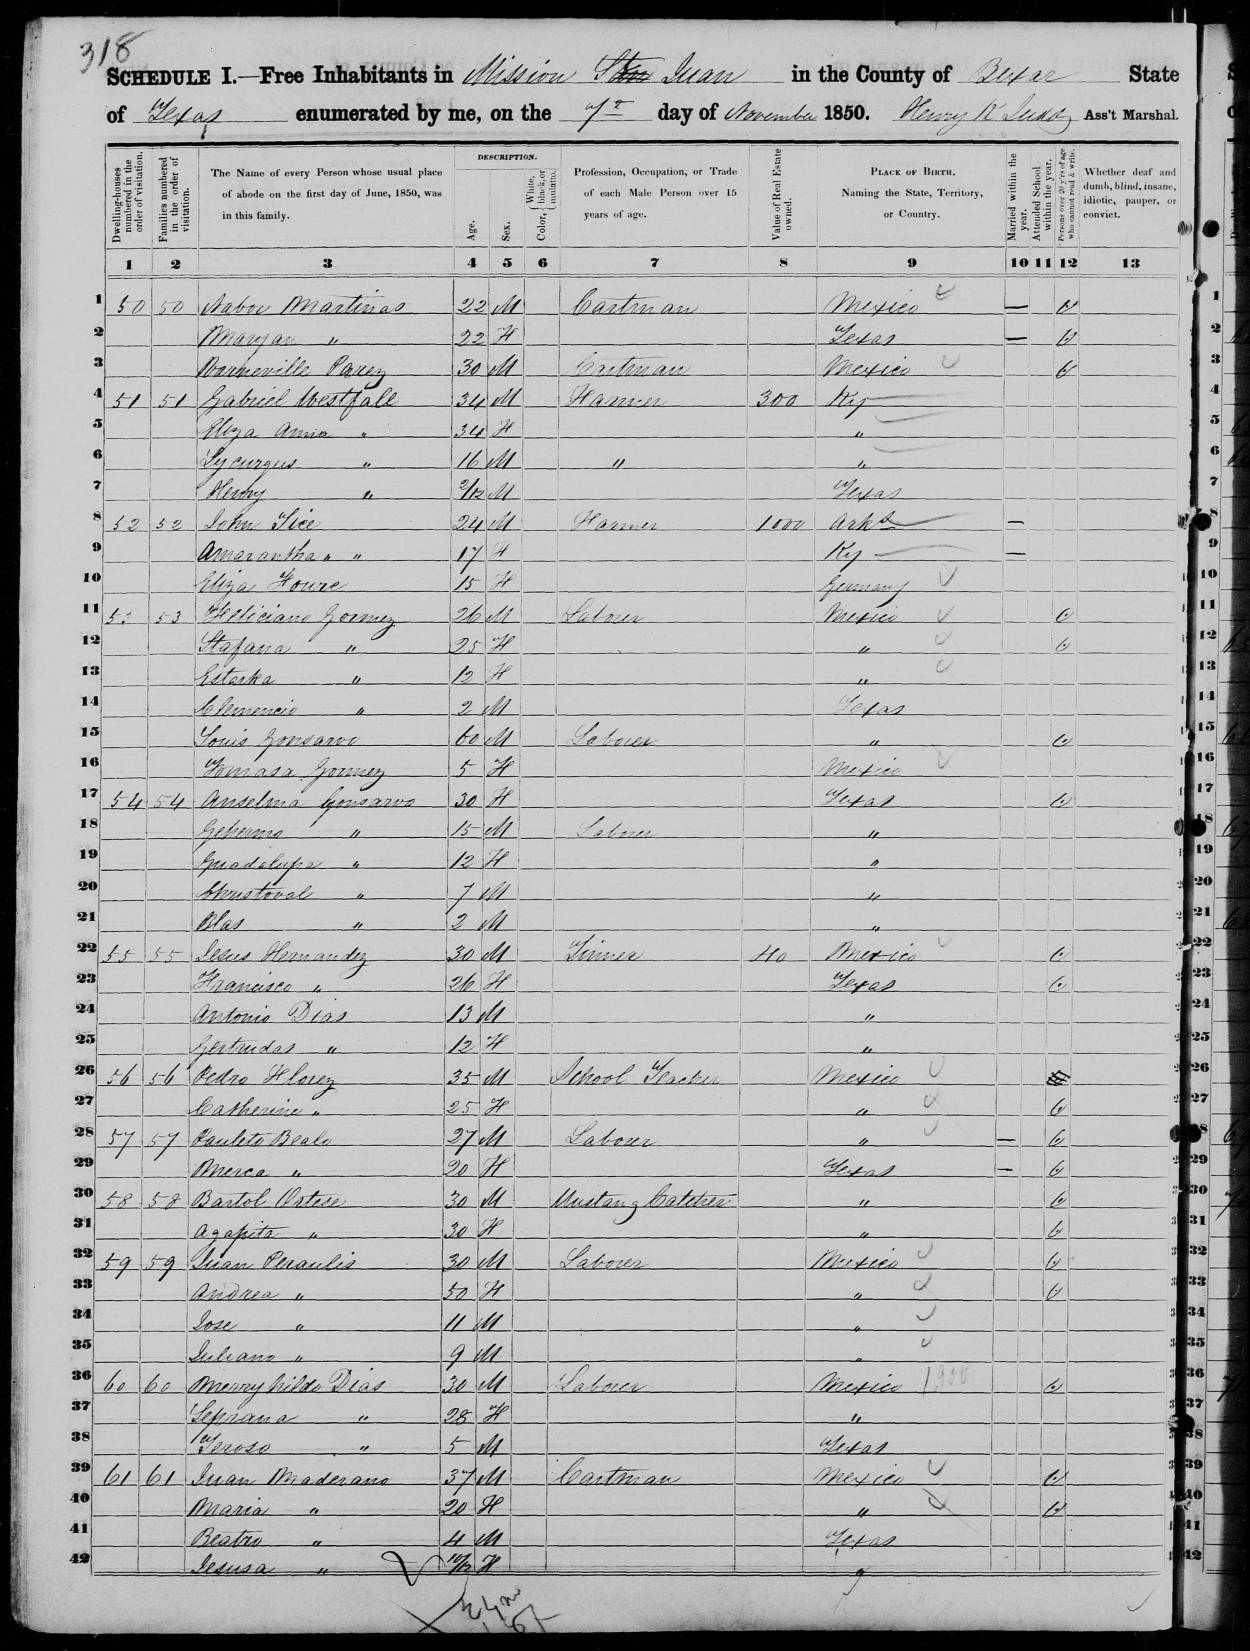 318
SCHEDULE I.—Free Inhabitants in Mission San Juan in the County of Bexar State
of Texas enumerated by me, on the 7th day of November 1850. Henry K Judd Ass't Marshal.
Dwelling-houses numbered in the order of visitation.
Families numbered in the order of visitation.
The Name of every Person whose usual place of abode on the first day of June, 1850, was in this family.
DESCRIPTION.
Age.
Sex.
Color, { White, black, or mulatto.
Profession, Occupation, or Trade of each Male Person over 15 years of age.
Value of Real Estate owned.
PLACE OF BIRTH. Naming the State, Territory, or Country.
Married within the year.
Attended School within the year.
Persons over 20 y'rs of age who cannot read & write.
Whether deaf and dumb, blind, insane, idiotic, pauper, or convict.
1 2 3 4 5 6 7 8 9 10 11 12 13
1 50 50 Nabor Martinas 22 M Cartman Mexico —
2 Maryan " 22 F Texas —
3 Barneville Parez 30 M Cartman Mexico
4 51 51 Gabriel Westfall 34 M Farmer 300 Ky
5 Eliza Ann " 34 F "
6 Lycurgus " 16 M " "
7 Henry " 2/12 M Texas
8 52 52 John Tice 24 M Farmer 1000 Arks —
9 Amarantha " " 17 F Ky —
10 Eliza Houre 15 F Germany
11 53 53 Feliciano Gomez 26 M Laborer Mexico
12 Stafana " 25 F "
13 Estarka " 12 F "
14 Clemencio " 2 M Texas
15 Louis Gonsarvo 60 M Laborer "
16 Tomasa Gomez 5 F Mexico
17 54 54 Anselma Gonsarvo 30 F Texas
18 Gehermo " 15 M Laborer "
19 Guadalupa " 12 F "
20 Christoval " 7 M "
21 Blas " 2 M "
22 55 55 Jesus Hernandez 30 M Tinner 40 Mexico
23 Francisco " 26 F Texas
24 Antonio Dias 13 M "
25 Gertrudas " 12 F "
26 56 56 Pedro Florez 35 M School Teacher Mexico
27 Catherine " 25 F "
28 57 57 Pauleto Bealo 27 M Laborer " —
29 Merca " 20 F Texas —
30 58 58 Bartol Ortese 30 M Mustang Catcher "
31 Agapita " 30 F "
32 59 59 Juan Peraulis 30 M Laborer Mexico
33 Andrea " 50 F "
34 Jose " 11 M "
35 Juliano " 9 M "
36 60 60 Merryhildo Dias 30 M Laborer Mexico 1,900
37 Seprana " 28 F "
38 Teroso " 5 M Texas
39 61 61 Juan Maderano 37 M Cartman Mexico
40 Maria " 20 F "
41 Beatro " 4 M Texas
42 Jesusa " 10/12 F "